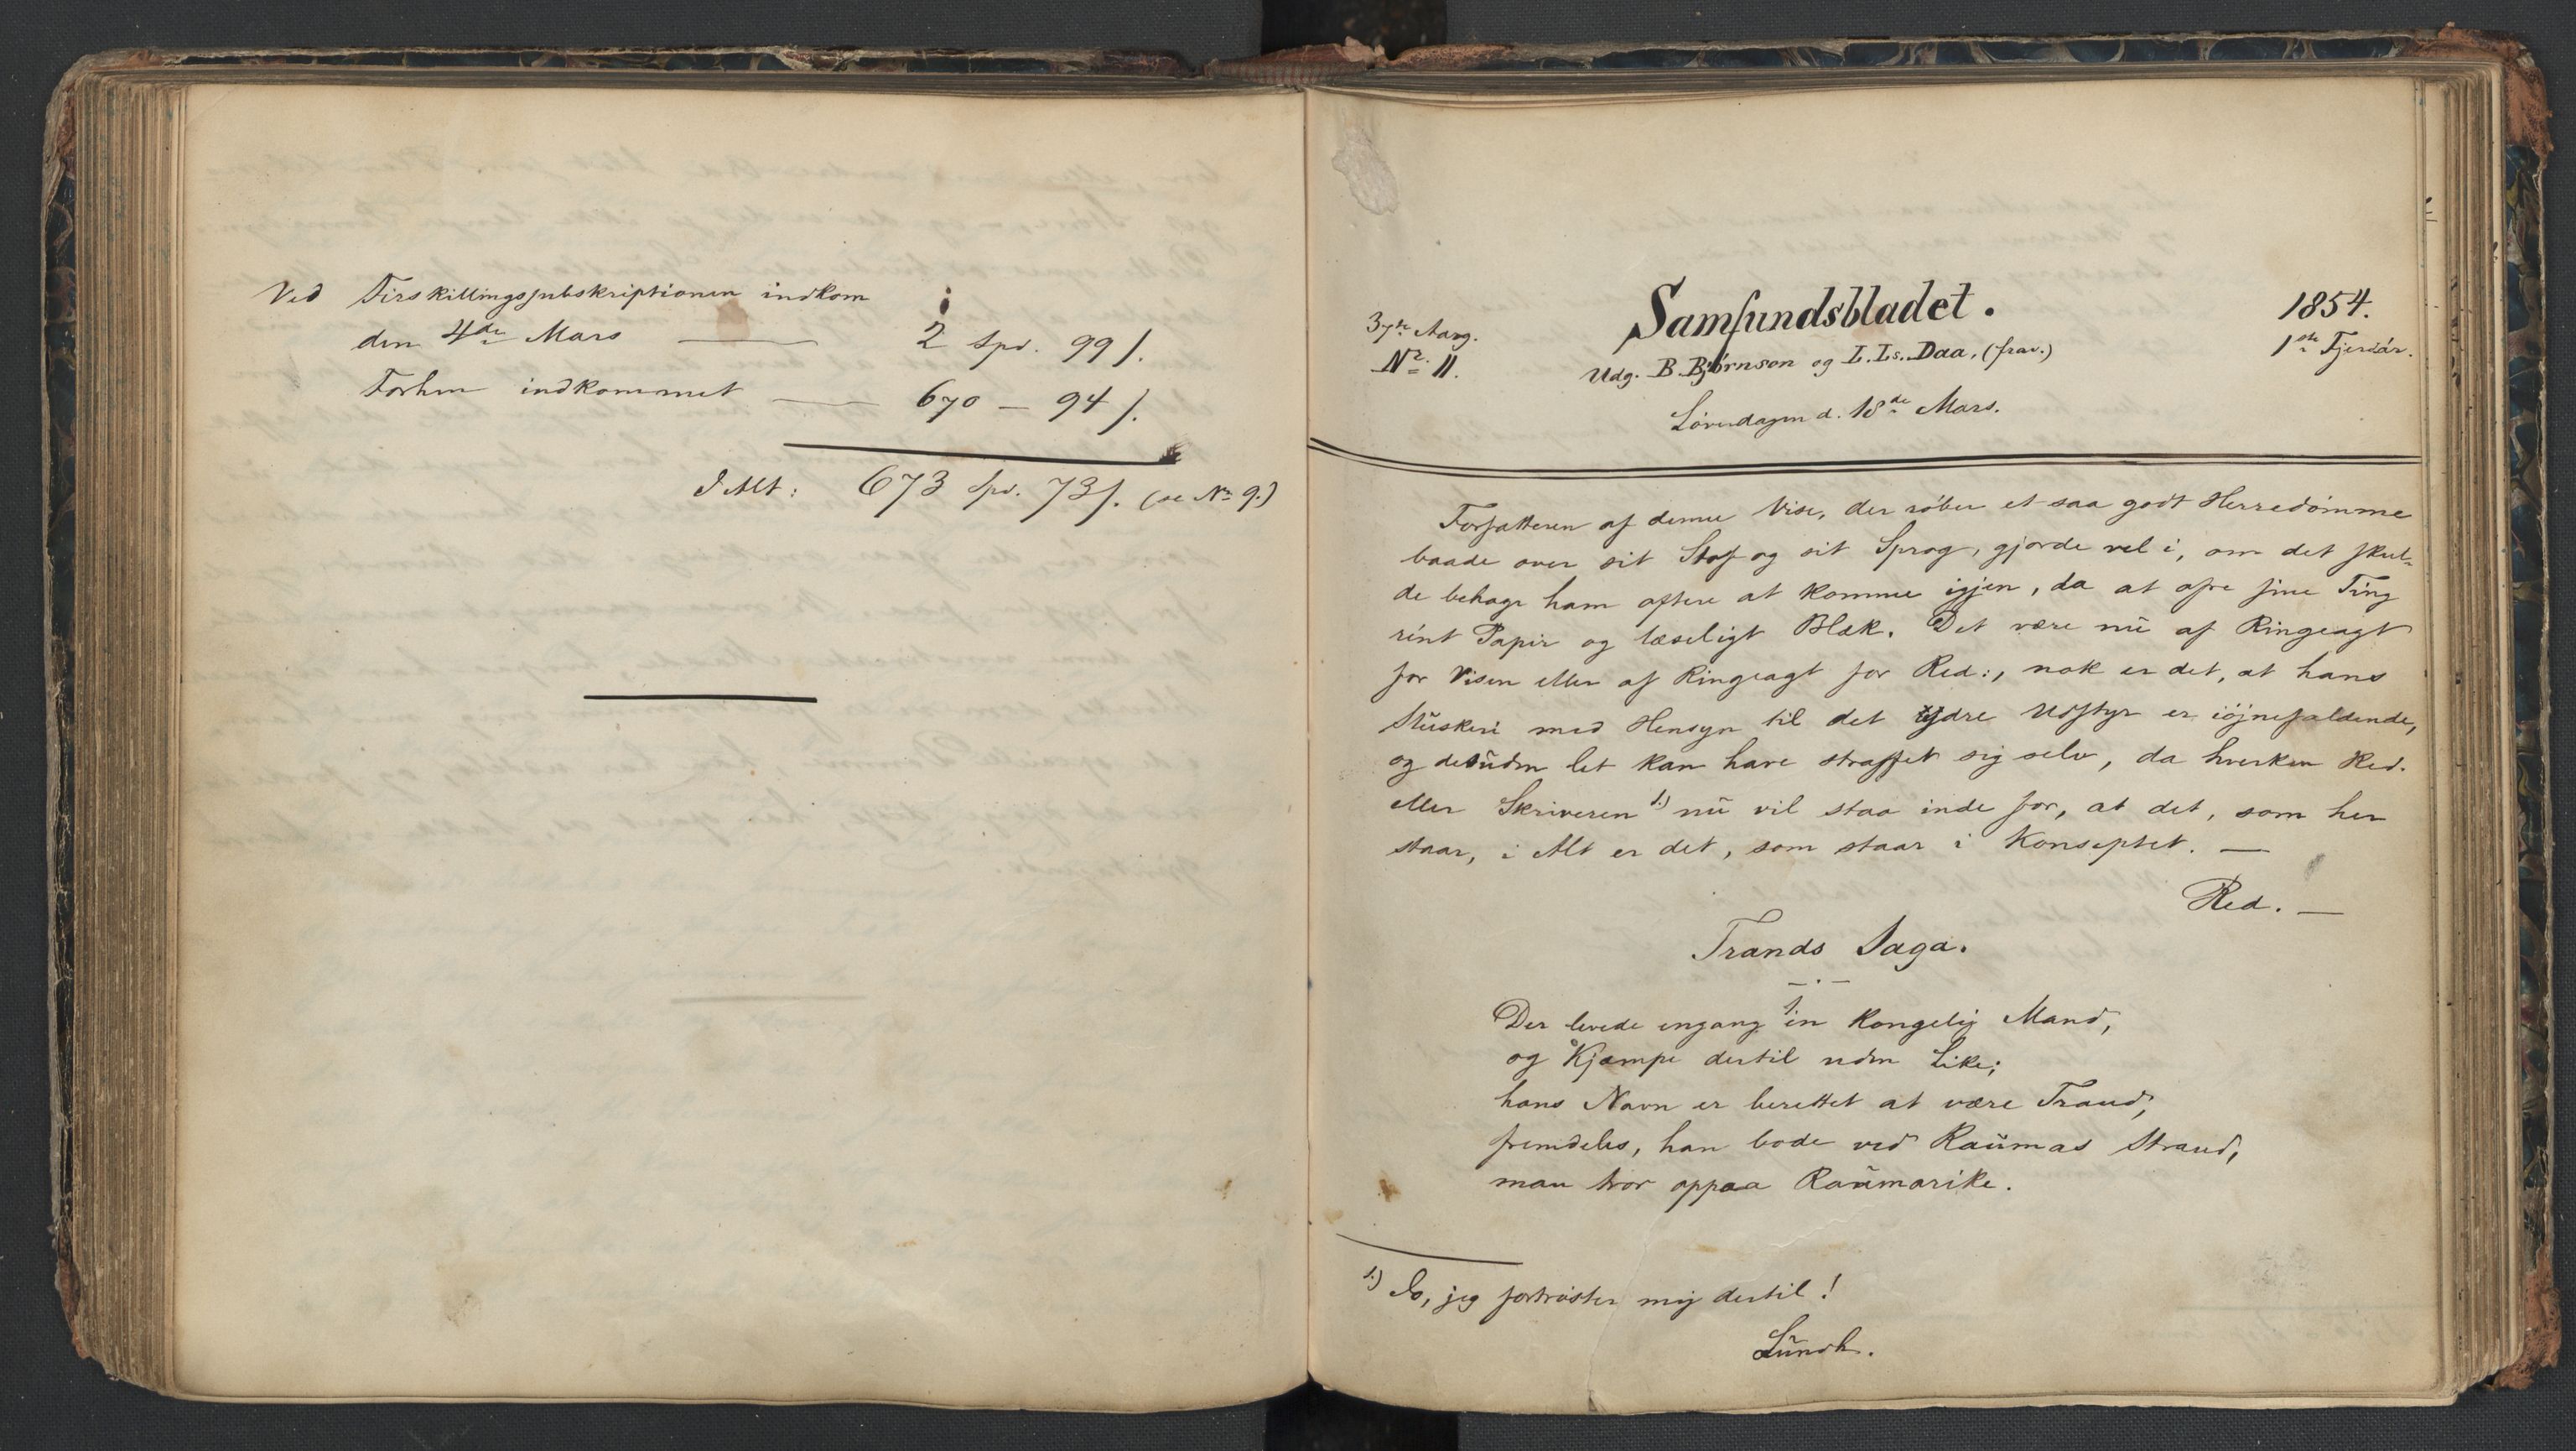 Ved Firskillingssubskriptionen indkom
den 4de Mars — 2 Spd. 99 s.
Forhen indkommet — 670 — 94 s.
I Alt: 673 Spd. 73 s. (se No 9.)
Samfundsbladet.
37te Aarg.
1854.
No 11.
Udg. B. Bjørnson og L. Ls. Daa, (frav.)
1ste Fjerdår.
Løverdagen d. 18de Mars.
Forfatteren af denne Vise, der røber et saa godt Herredømme
baade over sit Stof og sit Sprog, gjorde vel i, om det skul-
de behage ham oftere at komme igjen, da at ofre sine Ting
rént Papir og læseligt Blæk. Det være nu af Ringeagt
for Visen eller af Ringeagt for Red:, nok er det, at hans
Stuskeri med Hensyn til det ydre Udstyr er iøjnefaldende,
og desuden let kan have straffet sig selv, da hverken Red.
eller Skriveren 1.) nu vil staa inde for, at det, som her
staar, i Alt er det, som staar i Konseptet. —
Red. —
Trands Saga.
1.
Der levede engang en kongelig Mand,
og Kjæmpe dertil uden Like;
hans Navn er berettet at være Trand,
fremdeles, han bode ved Raumas Strand,
man tror oppaa Raumarike.
1.) Jo, jeg fortrøster mig dertil!
Lundh.